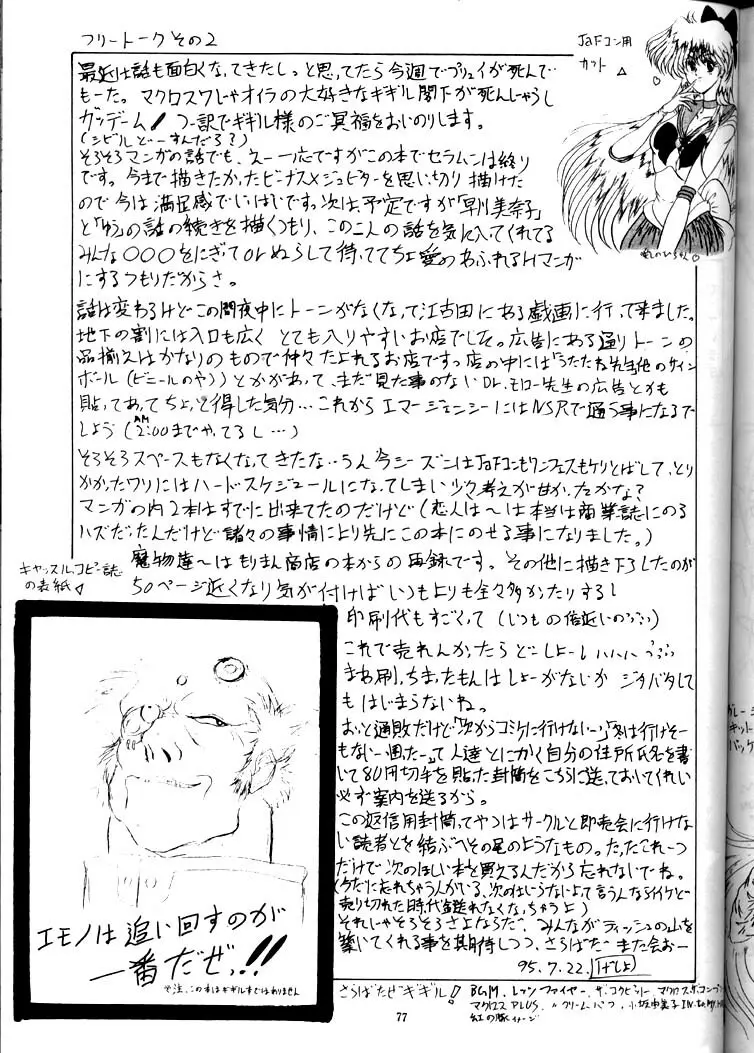 フリートーク その2
JaFコン用
カット
最近は話も面白くなってきたしっと思ってたら今週でプリュイが死んで
もーた。マクロス7じゃオイラの大好きなギギル閣下が死んじゃうし
ガッデーム! つー訳でギギル様のご冥福をおいのりします。
(シビルどーすんだろ?)
そろそろマンガの話でも、えー一応ですがこの本でセラムンは終り
です。今まで描きたかったビーナス×ジュピターを思い切り描けた
ので今は満足感でいっぱいです。次は、予定ですが「早川美奈子」
と「ゆう」の話の続きを描くつもり、この二人の話を気に入ってくれてる
みんな○○○をにぎってorぬらして待っててちょ愛のあふれるHマンガ
にするつもりだからさ。
話は変わるけどこの間夜中にトーンがなくなって江古田にある戯画に行って来ました。
地下の割には入口も広く とても入りやすいお店でした。広告にある通りトーンの
品揃えはかなりのもので仲々たよれるお店です。店の中には「うたたね先生他のサイン
ボール(ビニールのやつ)とかがあって、まだ見た事のないDr.モロー先生の広告とかも
貼ってあってちょっと得した気分…これからエマージェンシーにはNSRで通う事になるで
しょう(AM2:00までやってるし…)
そろそろスペースもなくなってきたな…うん今シーズンはJaFコンもワンフェスもケリとばして、とり
かかったワリにはハードスケジュールになってしまい少々考えが甘かったかな?
マンガの内2本はすでに出来てたのだけど(恋人は〜は本当は商業誌にのる
ハズだったんだけど諸々の事情により先にこの本にのせる事になりました。)
魔物達〜はもりまん商店の本からの再録です。その他に描き下ろしたのが
50ページ近くなり気が付けばいつもよりも全々多かったりするし
キャッスルコピー誌
の表紙
印刷代もすごくって(いつもの倍近いのう…)
これで売れんかったらどーしよーしハハハ…
まぁ刷っちまったもんはしょーがないかジタバタして
もはじまらないね。
おっと通販だけど「次からコミケに行けない〜」「冬は行けそー
もない一困ったーって人達とにかく自分の住所氏名を書
いて80円切手を貼った封筒をこちらに送っておいてくれい
必ず案内を送るから。
この返信用封筒ってやつはサークルと即売会に行けな
い読者とを結ぶへその尾のようなもの。たったこれ一つ
だけで次のほしい本を買えるんだから忘れないでね。
(今だに忘れちゃう人がいる、次のはいらないよて言うんならイイケど
売り切れた時代金送れなくなっちゃうよ)
それじゃそろそろさよならだ、みんながティッシュの山を
築いてくれる事を期待しつつ、さらばだ また会おー
95.7.22.
エモノは追い回すのが
一番だぜっ!!
※注、この本はギギル本ではありません
さらばだぜギギル!
BGM.レッツファイヤー、ザ・コクピット、マクロス・ザ・コンプ
マクロスPLUS、〃クリームパフ、小坂由美子IN
紅の豚イメージ
77